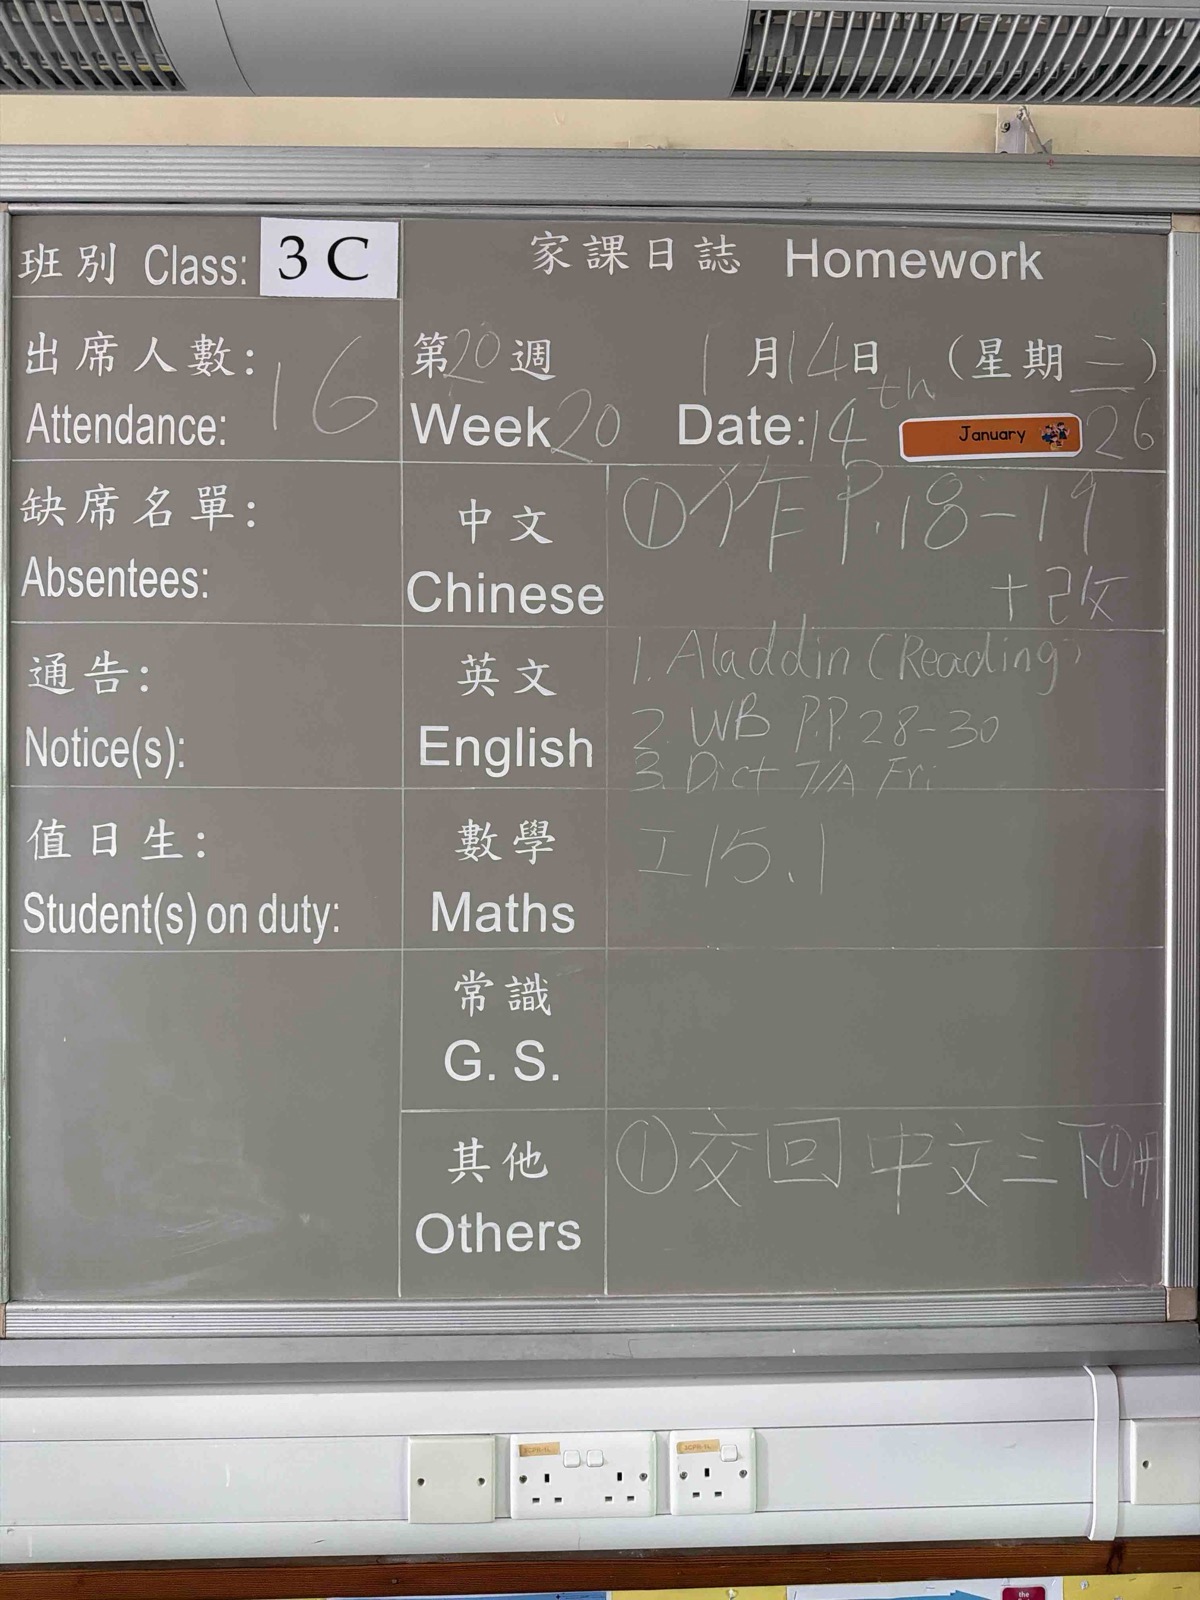 班別 Class: 3 C
家課日誌 Homework
出席人數: 16
Attendance:
第20週 1月14日 (星期三)
Week 20 Date: 14th January 26
缺席名單:
Absentees:
中文
Chinese
①作 P.18-19
+改
通告:
Notice(s):
英文
English
1. Aladdin (Reading)
2. WB P.P. 28-30
3. Dict 7/A Fri
值日生:
Student(s) on duty:
數學
Maths
工15.1
常識
G. S.
其他
Others
①交回中文三下①冊